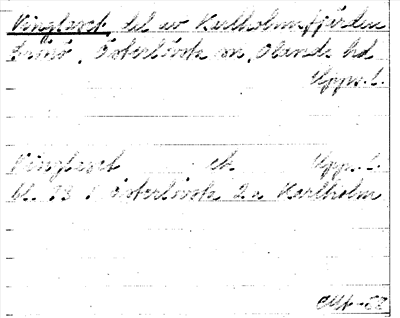 Vingbast del av Karlholmsfjärden
Österlövsta sn, Olands hd
Upps. l.
Vingbast ek Upps. l.
bl. 73 Österlövsta 2 a Karlholm